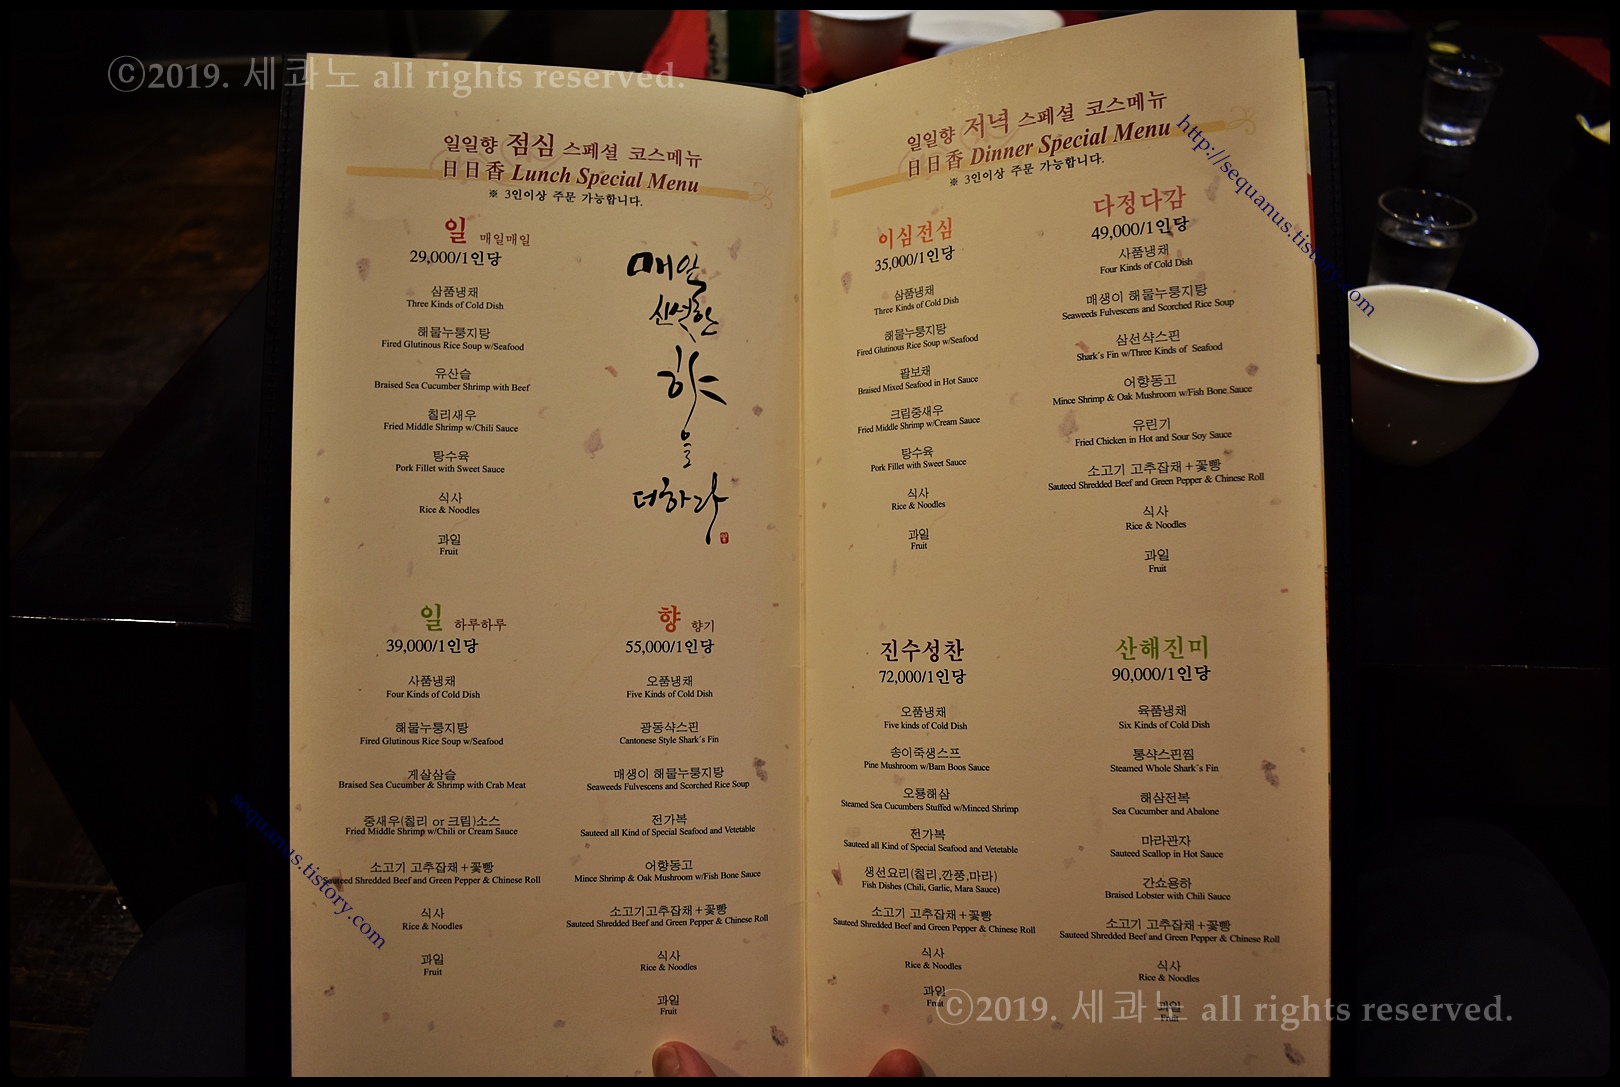 ⓒ2019. 세콰노 all rights reserved.
일일향 점심 스페셜 코스메뉴
日日香 Lunch Special Menu
※ 3인이상 주문 가능합니다.
일 매일매일
29,000/1인당
삼품냉채
Three Kinds of Cold Dish
해물누룽지탕
Fired Glutinous Rice Soup w/Seafood
유산슬
Braised Sea Cucumber Shrimp with Beef
칠리새우
Fried Middle Shrimp w/Chili Sauce
탕수육
Pork Fillet with Sweet Sauce
식사
Rice & Noodles
과일
Fruit
매일
신선한
향
을
더하라
일 하루하루
39,000/1인당
사품냉채
Four Kinds of Cold Dish
해물누룽지탕
Fired Glutinous Rice Soup w/Seafood
게살삼슬
Braised Sea Cucumber & Shrimp with Crab Meat
중새우(칠리 or 크림)소스
Fried Middle Shrimp w/Chili or Cream Sauce
소고기 고추잡채+꽃빵
Sauteed Shredded Beef and Green Pepper & Chinese Roll
식사
Rice & Noodles
과일
Fruit
향 향기
55,000/1인당
오품냉채
Five Kinds of Cold Dish
광동샥스핀
Cantonese Style Shark's Fin
매생이 해물누룽지탕
Seaweeds Fulvescens and Scorched Rice Soup
전가복
Sauteed all Kind of Special Seafood and Vetetable
어향동고
Mince Shrimp & Oak Mushroom w/Fish Bone Sauce
소고기고추잡채+꽃빵
Sauteed Shredded Beef and Green Pepper & Chinese Roll
식사
Rice & Noodles
과일
Fruit
sequanus.tistory.com
일일향 저녁 스페셜 코스메뉴
日日香 Dinner Special Menu
※ 3인이상 주문 가능합니다.
http://sequanus.tistory.com
이심전심
35,000/1인당
삼품냉채
Three Kinds of Cold Dish
해물누룽지탕
Fired Glutinous Rice Soup w/Seafood
팔보채
Braised Mixed Seafood in Hot Sauce
크림중새우
Fried Middle Shrimp w/Cream Sauce
탕수육
Pork Fillet with Sweet Sauce
식사
Rice & Noodles
과일
Fruit
다정다감
49,000/1인당
사품냉채
Four Kinds of Cold Dish
매생이 해물누룽지탕
Seaweeds Fulvescens and Scorched Rice Soup
삼선샥스핀
Shark's Fin w/Three Kinds of Seafood
어향동고
Mince Shrimp & Oak Mushroom w/Fish Bone Sauce
유린기
Fried Chicken in Hot and Sour Soy Sauce
소고기 고추잡채+꽃빵
Sauteed Shredded Beef and Green Pepper & Chinese Roll
식사
Rice & Noodles
과일
Fruit
진수성찬
72,000/1인당
오품냉채
Five kinds of Cold Dish
송이죽생스프
Pine Mushroom w/Bam Boos Sauce
오룡해삼
Steamed Sea Cucumbers Stuffed w/Minced Shrimp
전가복
Sauteed all Kind of Special Seafood and Vetetable
생선요리(칠리,깐풍,마라)
Fish Dishes (Chili, Garlic, Mara Sauce)
소고기 고추잡채+꽃빵
Sauteed Shredded Beef and Green Pepper & Chinese Roll
식사
Rice & Noodles
과일
Fruit
산해진미
90,000/1인당
육품냉채
Six Kinds of Cold Dish
통샥스핀찜
Steamed Whole Shark's Fin
해삼전복
Sea Cucumber and Abalone
마라관자
Sauteed Scallop in Hot Sauce
간쇼용하
Braised Lobster with Chili Sauce
소고기 고추잡채+꽃빵
Sauteed Shredded Beef and Green Pepper & Chinese Roll
식사
Rice & Noodles
과일
Fruit
ⓒ2019. 세콰노 all rights reserved.